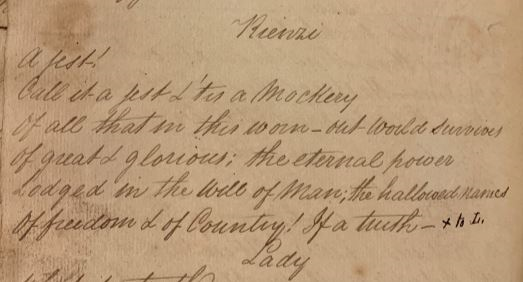 Rienzi
A jest!
Call it a jest & 'tis a Mockery
Of all that in this worn-out World survives
Of great & glorious; the eternal power
Lodged in the Will of Man; the hallowed names
Of freedom & of Country! If a truth –
Lady